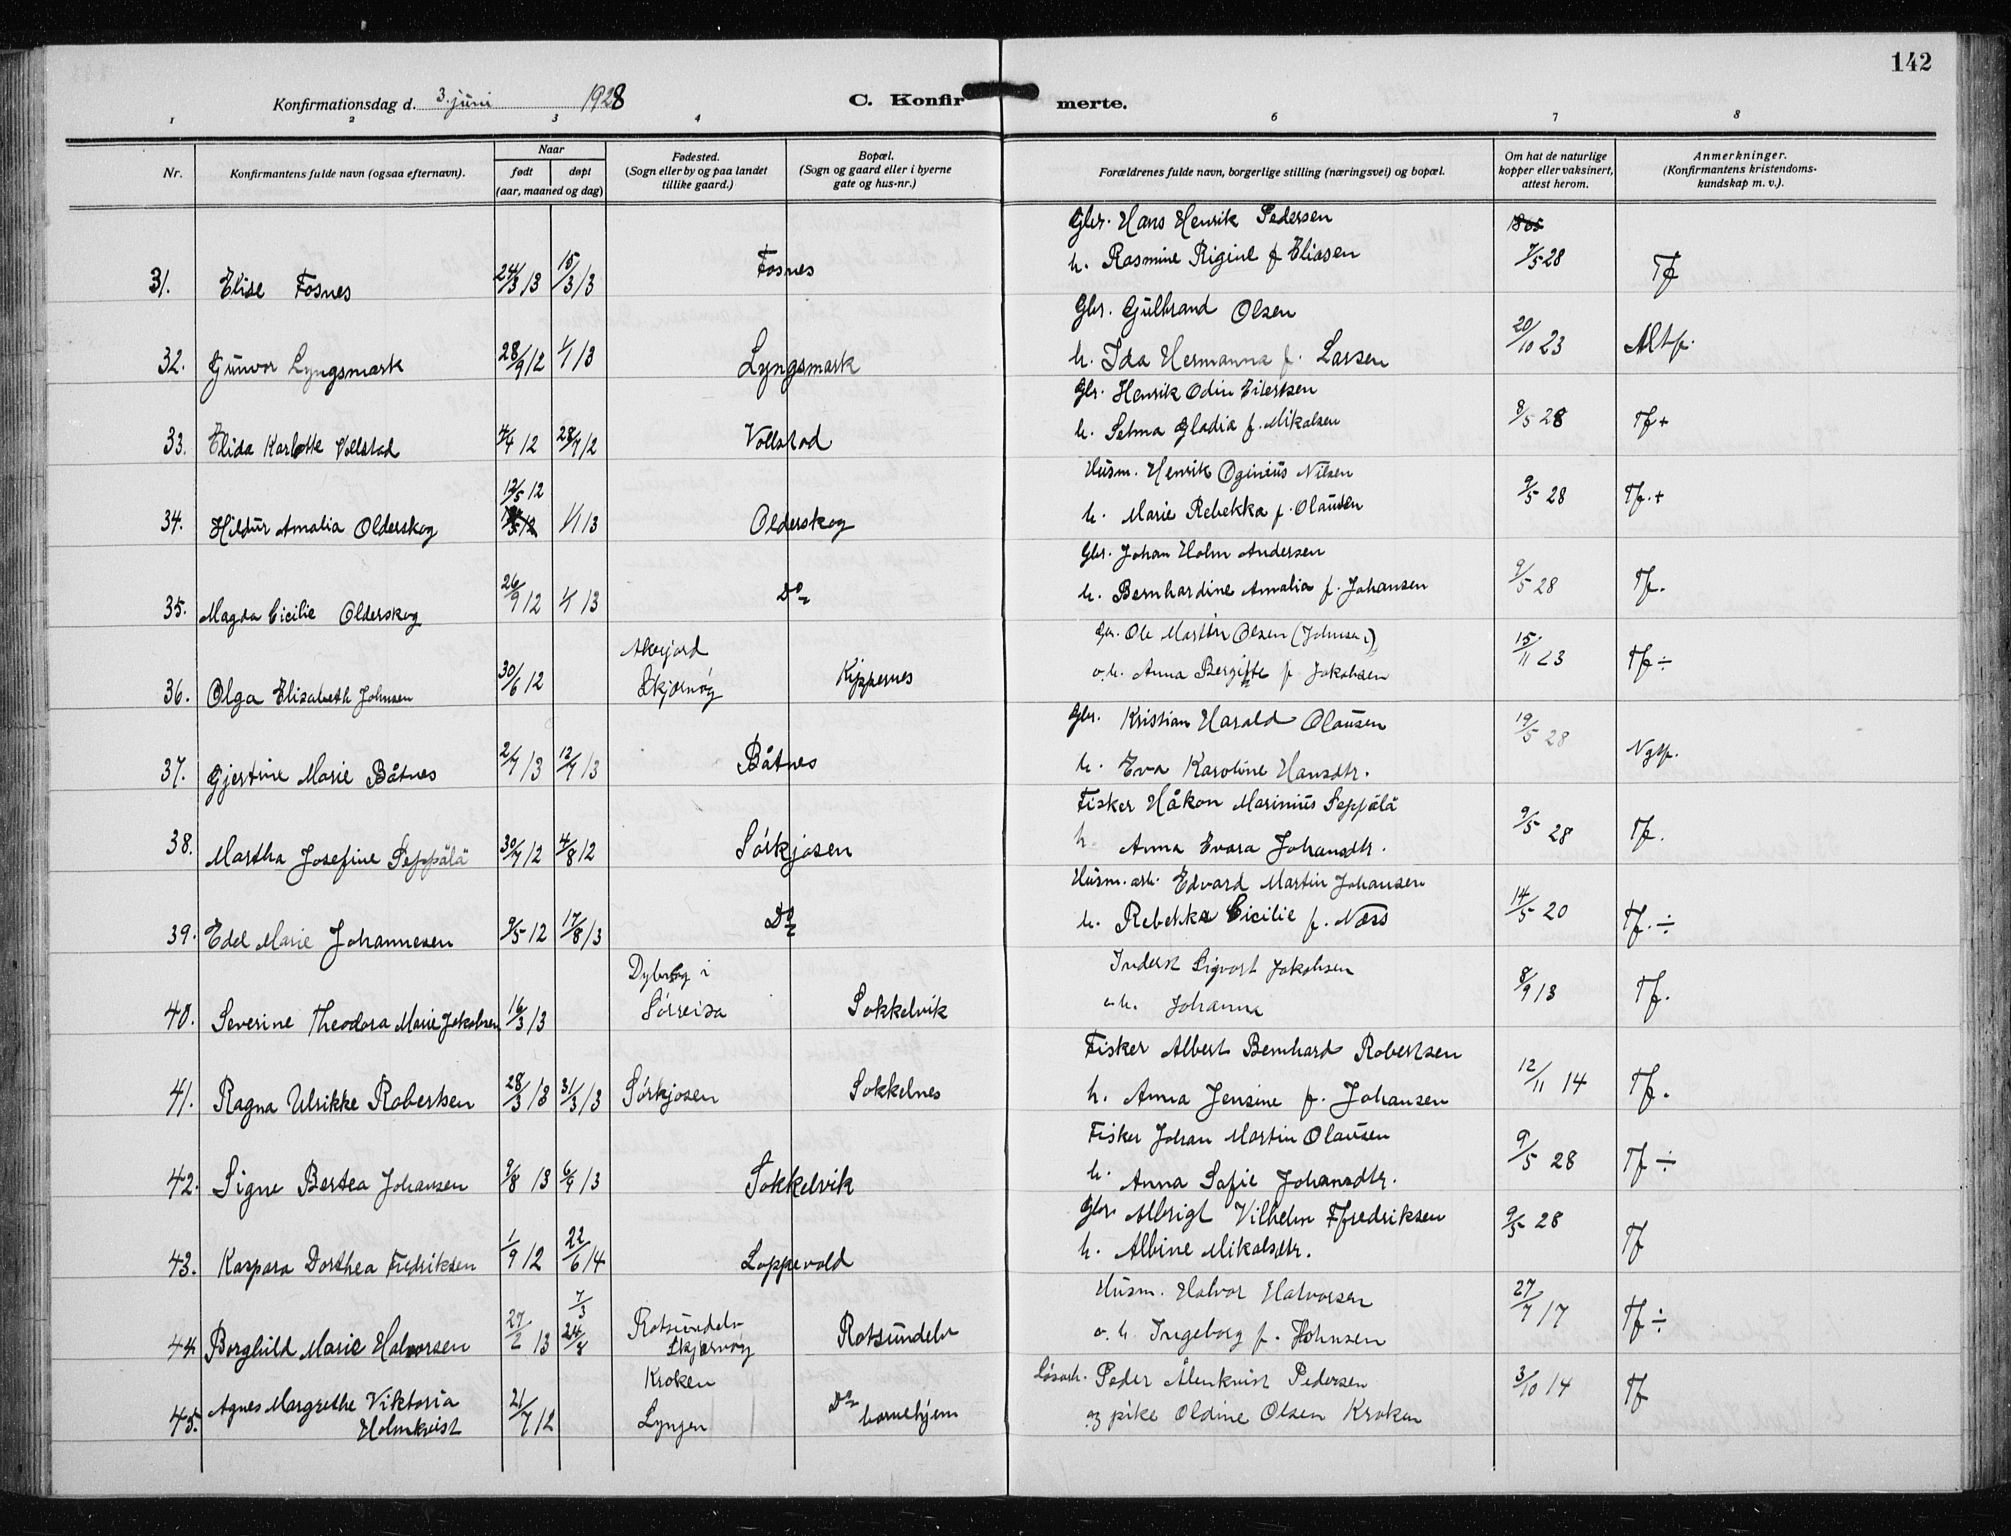 142
Konfirmationsdag d. 3. juni 1928
C. Konfirmerte.
1 2 3 4 6 7 8
Nr.
Konfirmantens fulde navn (ogsaa efternavn).
Naar
født døpt
(aar, maaned og dag)
Fødested.
(Sogn eller by og paa landet
tillike gaard.)
Bopæl.
(Sogn og gaard eller i byerne
gate og hus-nr.)
Forældrenes fulde navn, borgerlige stilling (næringsvei) og bopæl.
Om hat de naturlige
kopper eller vaksinert,
attest herom.
Anmerkninger.
(Konfirmantens kristendoms-
kundskap m. v.).
Gbr. Hans Henrik Pedersen
31. Elise Fosnes 24/3 13 15/3 13 Fosnes h. Rasmine Rigine f Eliasen 7/5 28 Tf
Gbr. Gulbrand Olsen
32. Gunvor Lyngsmark 28/9 12 1/1 13 Lyngsmark h. Ida Hermanna f. Larsen 20/10 23 Mtf.
Gbr. Henrik Odin Eilertsen
33. Elida Karlotte Vollstad 4/4 12 28/7 12 Vollstad h. Selma Gladia f. Mikalsen 8/5 28 Tf+
12/5 12 Husm. Henrik Oginius Nilsen
34. Hildur Amalia Olderskog 1/1 13 Olderskog h. Marie Rebekka f. Olausen 9/5 28 Tf.+
Gbr. Johan Holm Andersen
35. Magda Cicilie Olderskog 26/9 12 1/1 13 Do h. Bernhardine Amalia f. Johansen 9/5 28 Tf.
Akejord Gbr. Ole Martin Olsen (Johnsen)
36. Olga Elisabeth Johnsen 30/6 12 Skjervøy Kippernes o.h. Anna Bergitte f Jakobsen 15/11 23 Tf ÷
Gbr. Kristian Harald Olausen
37. Gjertine Marie Båtnes 2/7 13 12/7 13 Båtnes h. Eva Karoline Hansdtr. 19/5 28 Ngtf.
Fisker Håkon Marinius Seppälä
38. Martha Josefine Seppälä 30/7 12 4/8 12 Sørkjosen h. Anna Evara Johansdtr. 9/5 28 Tf.
Husm. arb. Edvard Martin Johansen
39. Edel Marie Johannesen 9/5 12 17/8 13 Do h. Rebekka Cicilie f. Næss 14/5 20 Tf. ÷
Inderst Sigvart Jakobsen
40. Severine Theodora Marie Jakobsen 16/3 13 i Sørreisa Sokkelvik o.h. Johanna 8/9 13 Tf.
Fisker Albert Bernhard Robertsen
41. Ragna Ulrikke Robertsen 28/3 13 31/3 13 Sørkjosen Sokkelnes h. Anna Jensine f. Johansen 12/11 14 Tf.
Fisker Johan Martin Olausen
42. Signe Bertea Johansen 9/8 13 6/9 13 Sokkelvik h. Anna Sofie Johansdtr. 9/5 28 Tf ÷
Gbr. Albrigt Vilhelm Fredriksen
43. Kaspara Dorthea Fredriksen 1/9 12 22/6 14 Loppevold h. Albine Mikalsdtr. 9/5 28 Tf
7/3 Husm. Halvor Halvorsen
44. Borghild Marie Halvorsen 27/2 13 24/8 Rotsundelv Skjervøy Rotsundelv o.h. Ingeborg f. Johnsen 27/7 17 Tf ÷
Kroken Løsarb. Peder Ålenkvist Pedersen
45. Agnes Margrethe Viktoria 21/7 12 Do 3/10 14 Tf
Holmkvist Lyngen barnehjem og pike Oldine Olsen Kroken